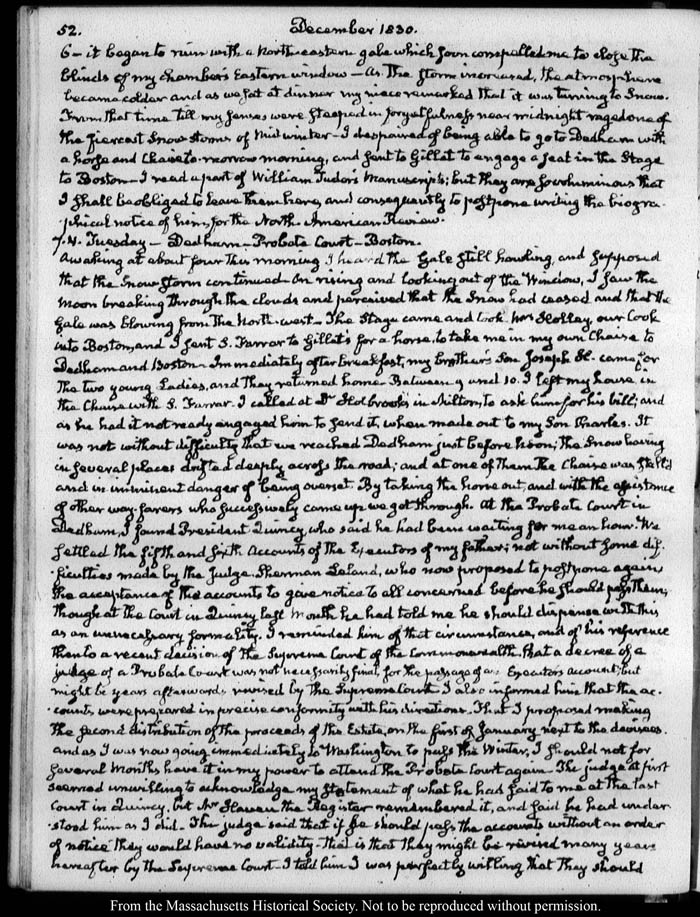 52.
December 1830.
6 – it began to rain with a North-eastern gale which soon compelled me to close the
blinds of my chamber's Eastern window – As the storm increased, the atmosphere
became colder and as we sat at dinner my niece remarked that it was turning to Snow.
From that time till my senses were steeped in forgetfulness near midnight raged one of
the fiercest Snow storms of Mid winter – I despaired of being able to go to Dedham with
a horse and Chaise to-morrow morning, and sent to Gillet to engage a seat in the Stage
to Boston – I read a part of William Tudor's Manuscripts; but they are so voluminous that
I shall be obliged to leave them here, and consequently to postpone writing the biogra-
-phical notice of him, for the North-American Review.
7. IV. Tuesday – Dedham – Probate Court – Boston.
Awaking at about four this morning I heard the Gale still howling, and supposed
that the Snow storm continued – On rising and looking out of the Window, I saw the
Moon breaking through the clouds and perceived that the Snow had ceased and that the
Gale was blowing from the North-west – The Stage came and took Mrs our Cook
into Boston, and I sent S. Farrar to Gillet's for a horse, to take me in my own Chaise to
Dedham and Boston – Immediately after breakfast, my brother's Son Joseph H. came for
the two young Ladies, and they returned home – Between 9 and 10. I left my house in
the Chaise with S. Farrar. I called at Dr Holbrook's in Milton, to ask him for his bill; and
as he had it not ready engaged him to send it, when made out to my Son Charles. It
was not without difficulty that we reached Dedham just before Noon; the Snow having
in several places drifted deeply across the road; and at one of them the Chaise was
and in imminent danger of being overset. By taking the horse out, and with the assistance
of other way-farers who successively came up we got through. At the Probate Court in
Dedham, I found President Quincy, who said he had been waiting for me an hour. We
settled the fifth and sixth Accounts of the Executors of my father; not without some dif-
-ficulties made by the Judge. Sherman Leland, who now proposed to postpone again
the acceptance of the accounts to gave notice to all concerned before he should pass them,
though at the Court in Quincy last Month he had told me he should dispense with this
as an unnecessary formality. I reminded him of that circumstance, and of his reference
then to a recent decision of the Supreme Court of the Commonwealth, that a decree of a
judge of a Probate Court was not necessarily final, for the passage of an Executors account, but
might be years afterwards revised by the Supreme Court. I also informed him that the ac-
-counts were prepared in precise conformity with his directions. That I proposed making
the second distribution of the proceeds of the Estate, on the first of January next to the devisees.
and as I was now going immediately to Washington to pass the Winter, I should not for
several Months have it in my power to attend the Probate Court again – The judge at first
seemed unwilling to acknowledge my statement of what he had said to me at the last
Court in Quincy, but Mr Haven the Register remembered it, and said he had under-
-stood him as I did – The judge said that if he should pass the accounts without an order
of notice they would have no validity – that is that they might be revised many years
hereafter by the Supreme Court – I told him I was perfectly willing that they should
From the Massachusetts Historical Society. Not to be reproduced without permission.